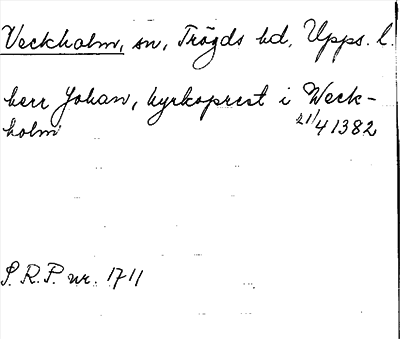 Veckholm, sn, Trögds hd, Upps. l.
herr Johan, kyrkoprest i Weck-
holm 21/4 1382
S.R.P. nr. 1711